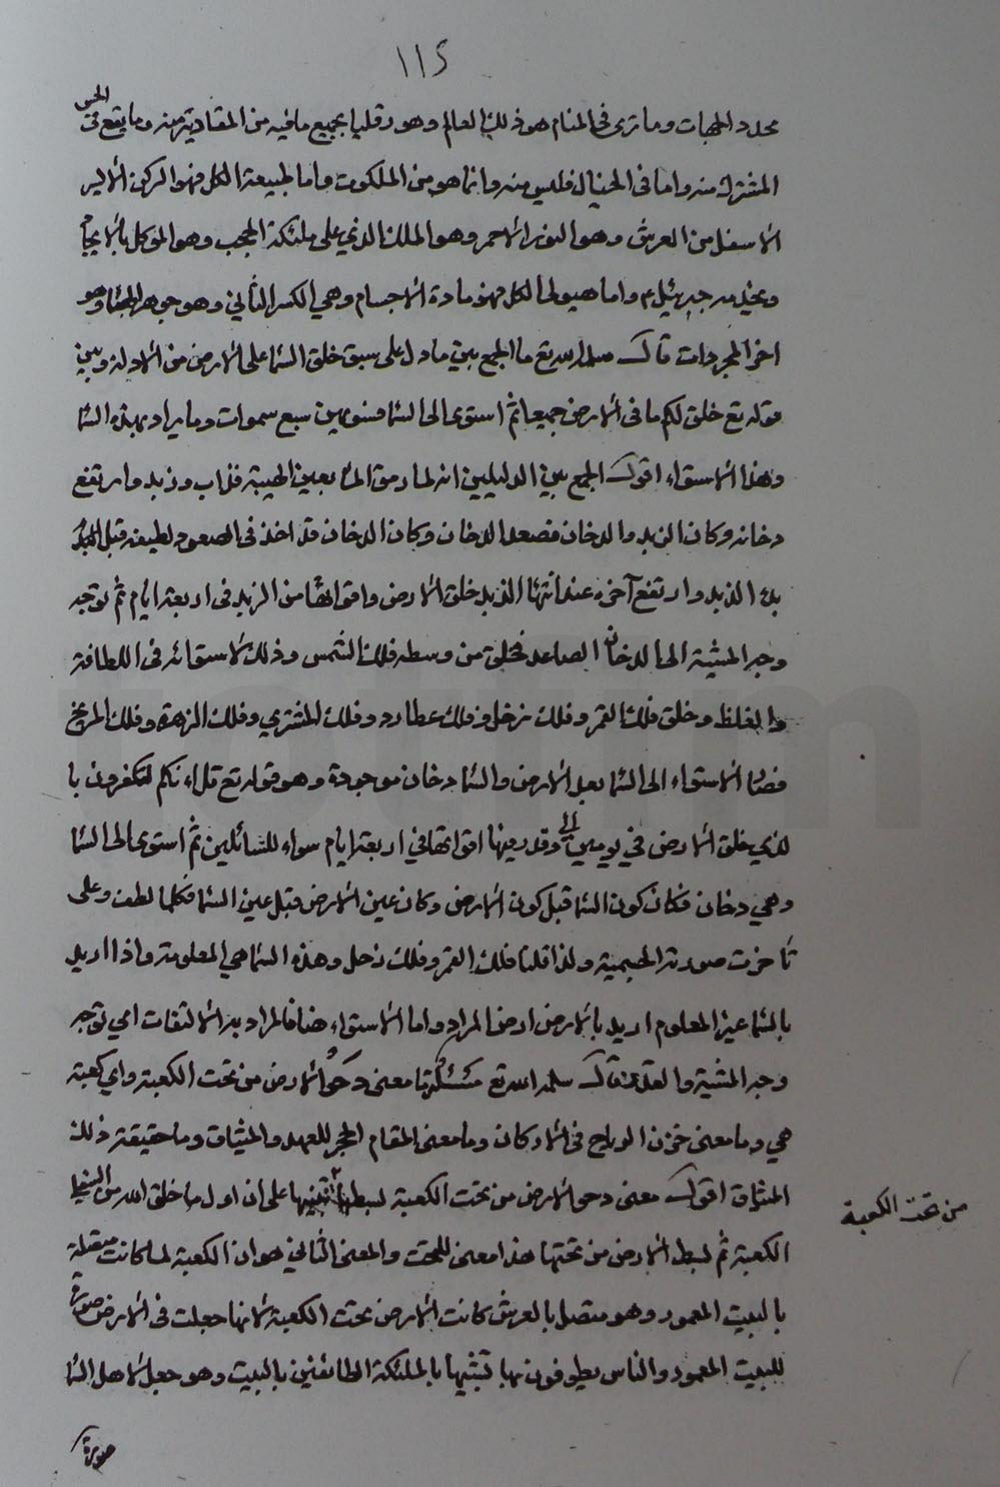 ١١٥
محدد الجهات وما ترى في المنام هو ذلك العالم وهو رقليا بجميع ما فيه من المقادير منه وما يقع في الحس
المشترك منه واما في الخيال فليس منه وانما هو من الملكوت واما طبيعة الكل فهو الركن الايسر
الاسفل من العرش وهو النور الاحمر وهو الملك الذي على ملئكة الحجب وهو الموكل بالايجاد
ويخدمه جبرئيل ع واما هيولى الكل فهو مادة الاجسام وهي الكسر الثاني وهو جوهر الهباء وهو
اخر المجردات قال سلمه الله تع ما الجمع بين ما دل على سبق خلق السما على الارض من الادلة وبين
قوله تع خلق لكم ما في الارض جميعا ثم استوى الى السما فسويهن سبع سموات وما يراد بهذه السما
وهذا الاستواء اقول الجمع بين الدليلين انه لما رمق الماء بعين الهيبة فذاب وزبد وارتفع
دخانه وكان الزبد والدخان فصعد الدخان وكان الدخان قد اخذ في الصعود لطيفه قبل
بدء الزبد وارتفع آخره عند انتهاء الزبد خلق الارض واقواتها من الزبد في اربعة ايام ثم توجه
وجه المشية الى الدخان الصاعد فخلق من وسطه فلك الشمس وذلك لاستوائه في اللطافة
والغلظ وخلق فلك القمر وفلك زحل وفلك عطارد وفلك المشتري وفلك الزهرة وفلك المريخ
فصار الاستواء الى السما بعد الارض والسما دخان موجودة وهو قوله تع قل اءنكم لتكفرون با
لذي خلق الارض في يومين الى وقدر فيها اقواتها في اربعة ايام سواء للسائلين ثم استوى الى السما
وهي دخان فكان كون السما قبل كون الارض وكان عين الارض قبل عين السما فكلما لطف وعلى
تاخرت صورته الجسمية ولذا قلنا فلك القمر وفلك زحل وهذه السما هي المعلومة واذا اريد
بالسما غير المعلوم اريد بالارض ارض المراد واما الاستواء هنا فالمراد به الالتفات اي توجه
وجه المشية والقدرة قال سلمه الله تع مسئلة ما معنى دحو الارض من تحت الكعبة واي كعبة
هي وما معنى خزن الرياح في الاركان وما معنى المقام الحجر للعهد والميثاق وما حقيقة ذلك
الميثاق اقول معنى دحو الارض من تحت الكعبة بسطها تنبيها على ان اول ما خلق الله من
الكعبة ثم بسط الارض من تحتها هذا معنى للتحت والمعنى الثاني هو ان الكعبة لما كانت متصلة
بالبيت المعمور وهو متصل بالعرش كانت الارض تحت الكعبة لانها جعلت في الارض صورة
للبيت المعمور والناس يطوفون بها تشبيها بالملئكة الطائفين بالبيت وهو جعل لاهل السما
من تحت الكعبة
صورة